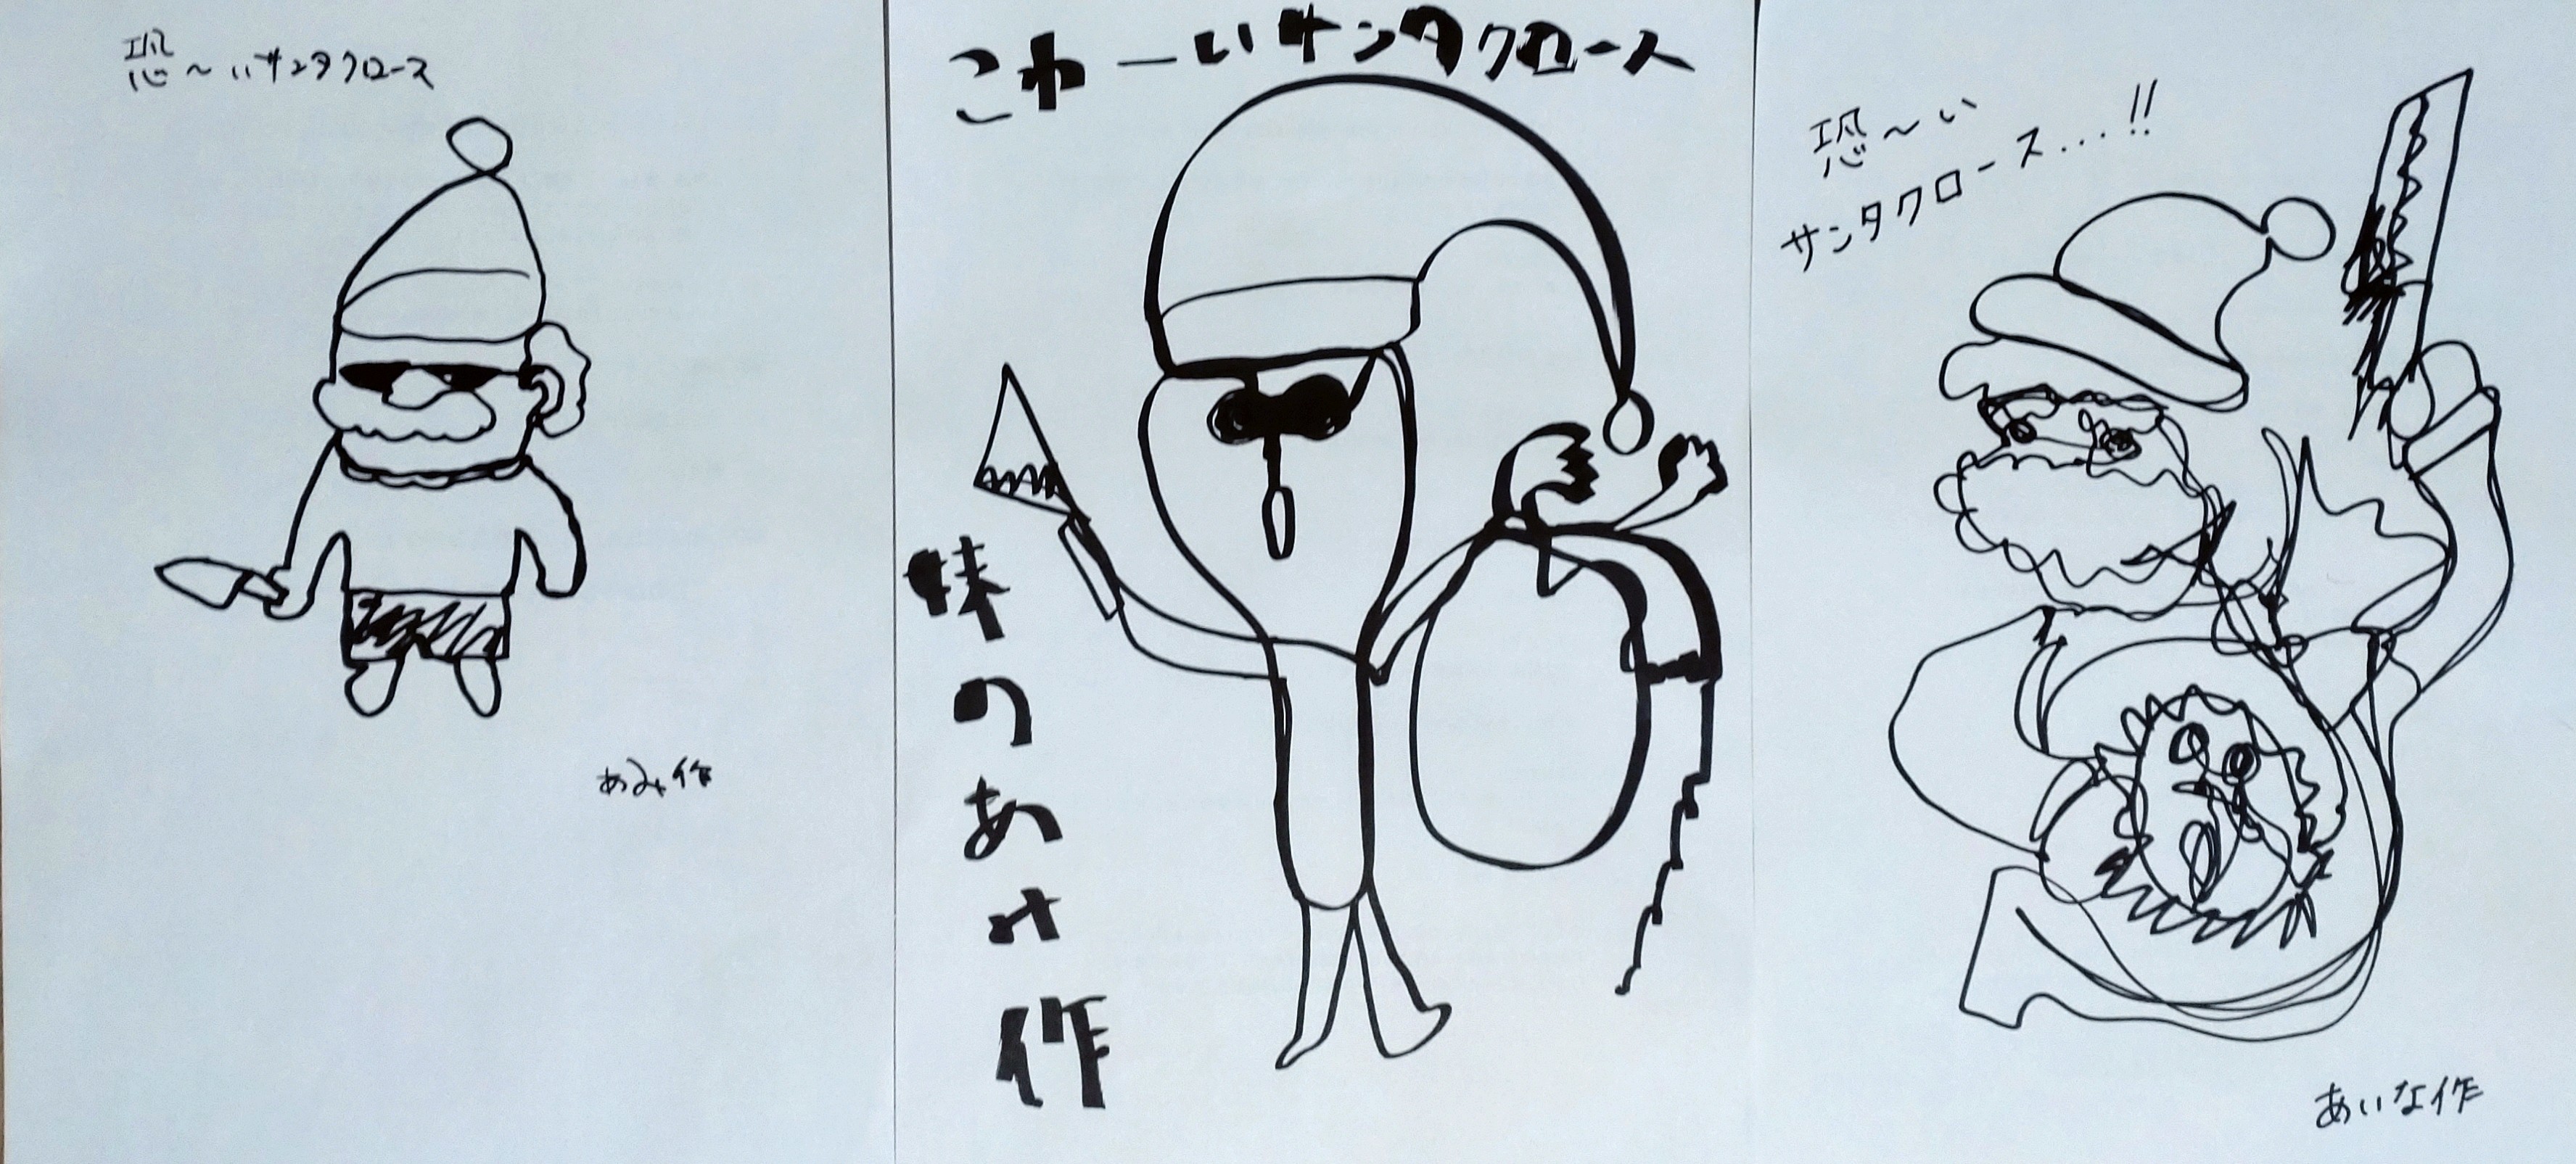 恐～いサンタクロース
あみ作
こわーいサンタクロース
妹のあみ作
恐～い
サンタクロース...!!
あいな作